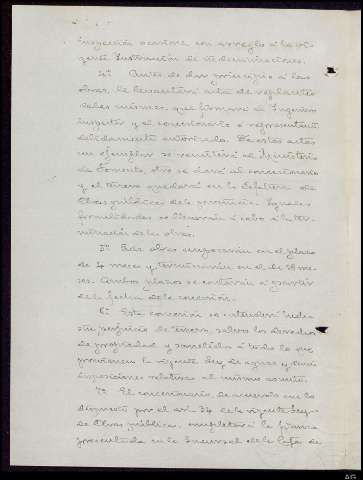 inspección ocasione con arreglo á la vi-
gente Instrucción de indemnizaciones.
4ª. Antes de dar principio á las
obras, se levantará acta de replanteo
de las mismas, que firmará el Ingeniero
inspector y el concesionario ó representante
debidamente autorizado. De estas actas
un ejemplar se remitirá al Ministerio
de Fomento, otro se dará al concesionario
y el tercero quedará en la Jefatura de
Obras públicas de la provincia. Iguales
formalidades se llevarán á cabo á la ter-
minación de las obras.
5ª. Las obras empezarán en el plazo
de 4 meses y terminarán en el de 18 me-
ses. Ambos plazos se contarán á partir
de la fecha de la concesión.
6ª. Esta concesión se entenderá hecha
sin perjuicio de tercero, salvo los derechos
de propiedad y sometida á todo lo que
previenen la vigente Ley de aguas y demás
disposiciones relativas al mismo asunto.
7ª. El concesionario, de acuerdo con lo
dispuesto por el art. 24 de la vigente Ley
de Obras públicas, completará la fianza
presentada en la Sucursal de la Caja de